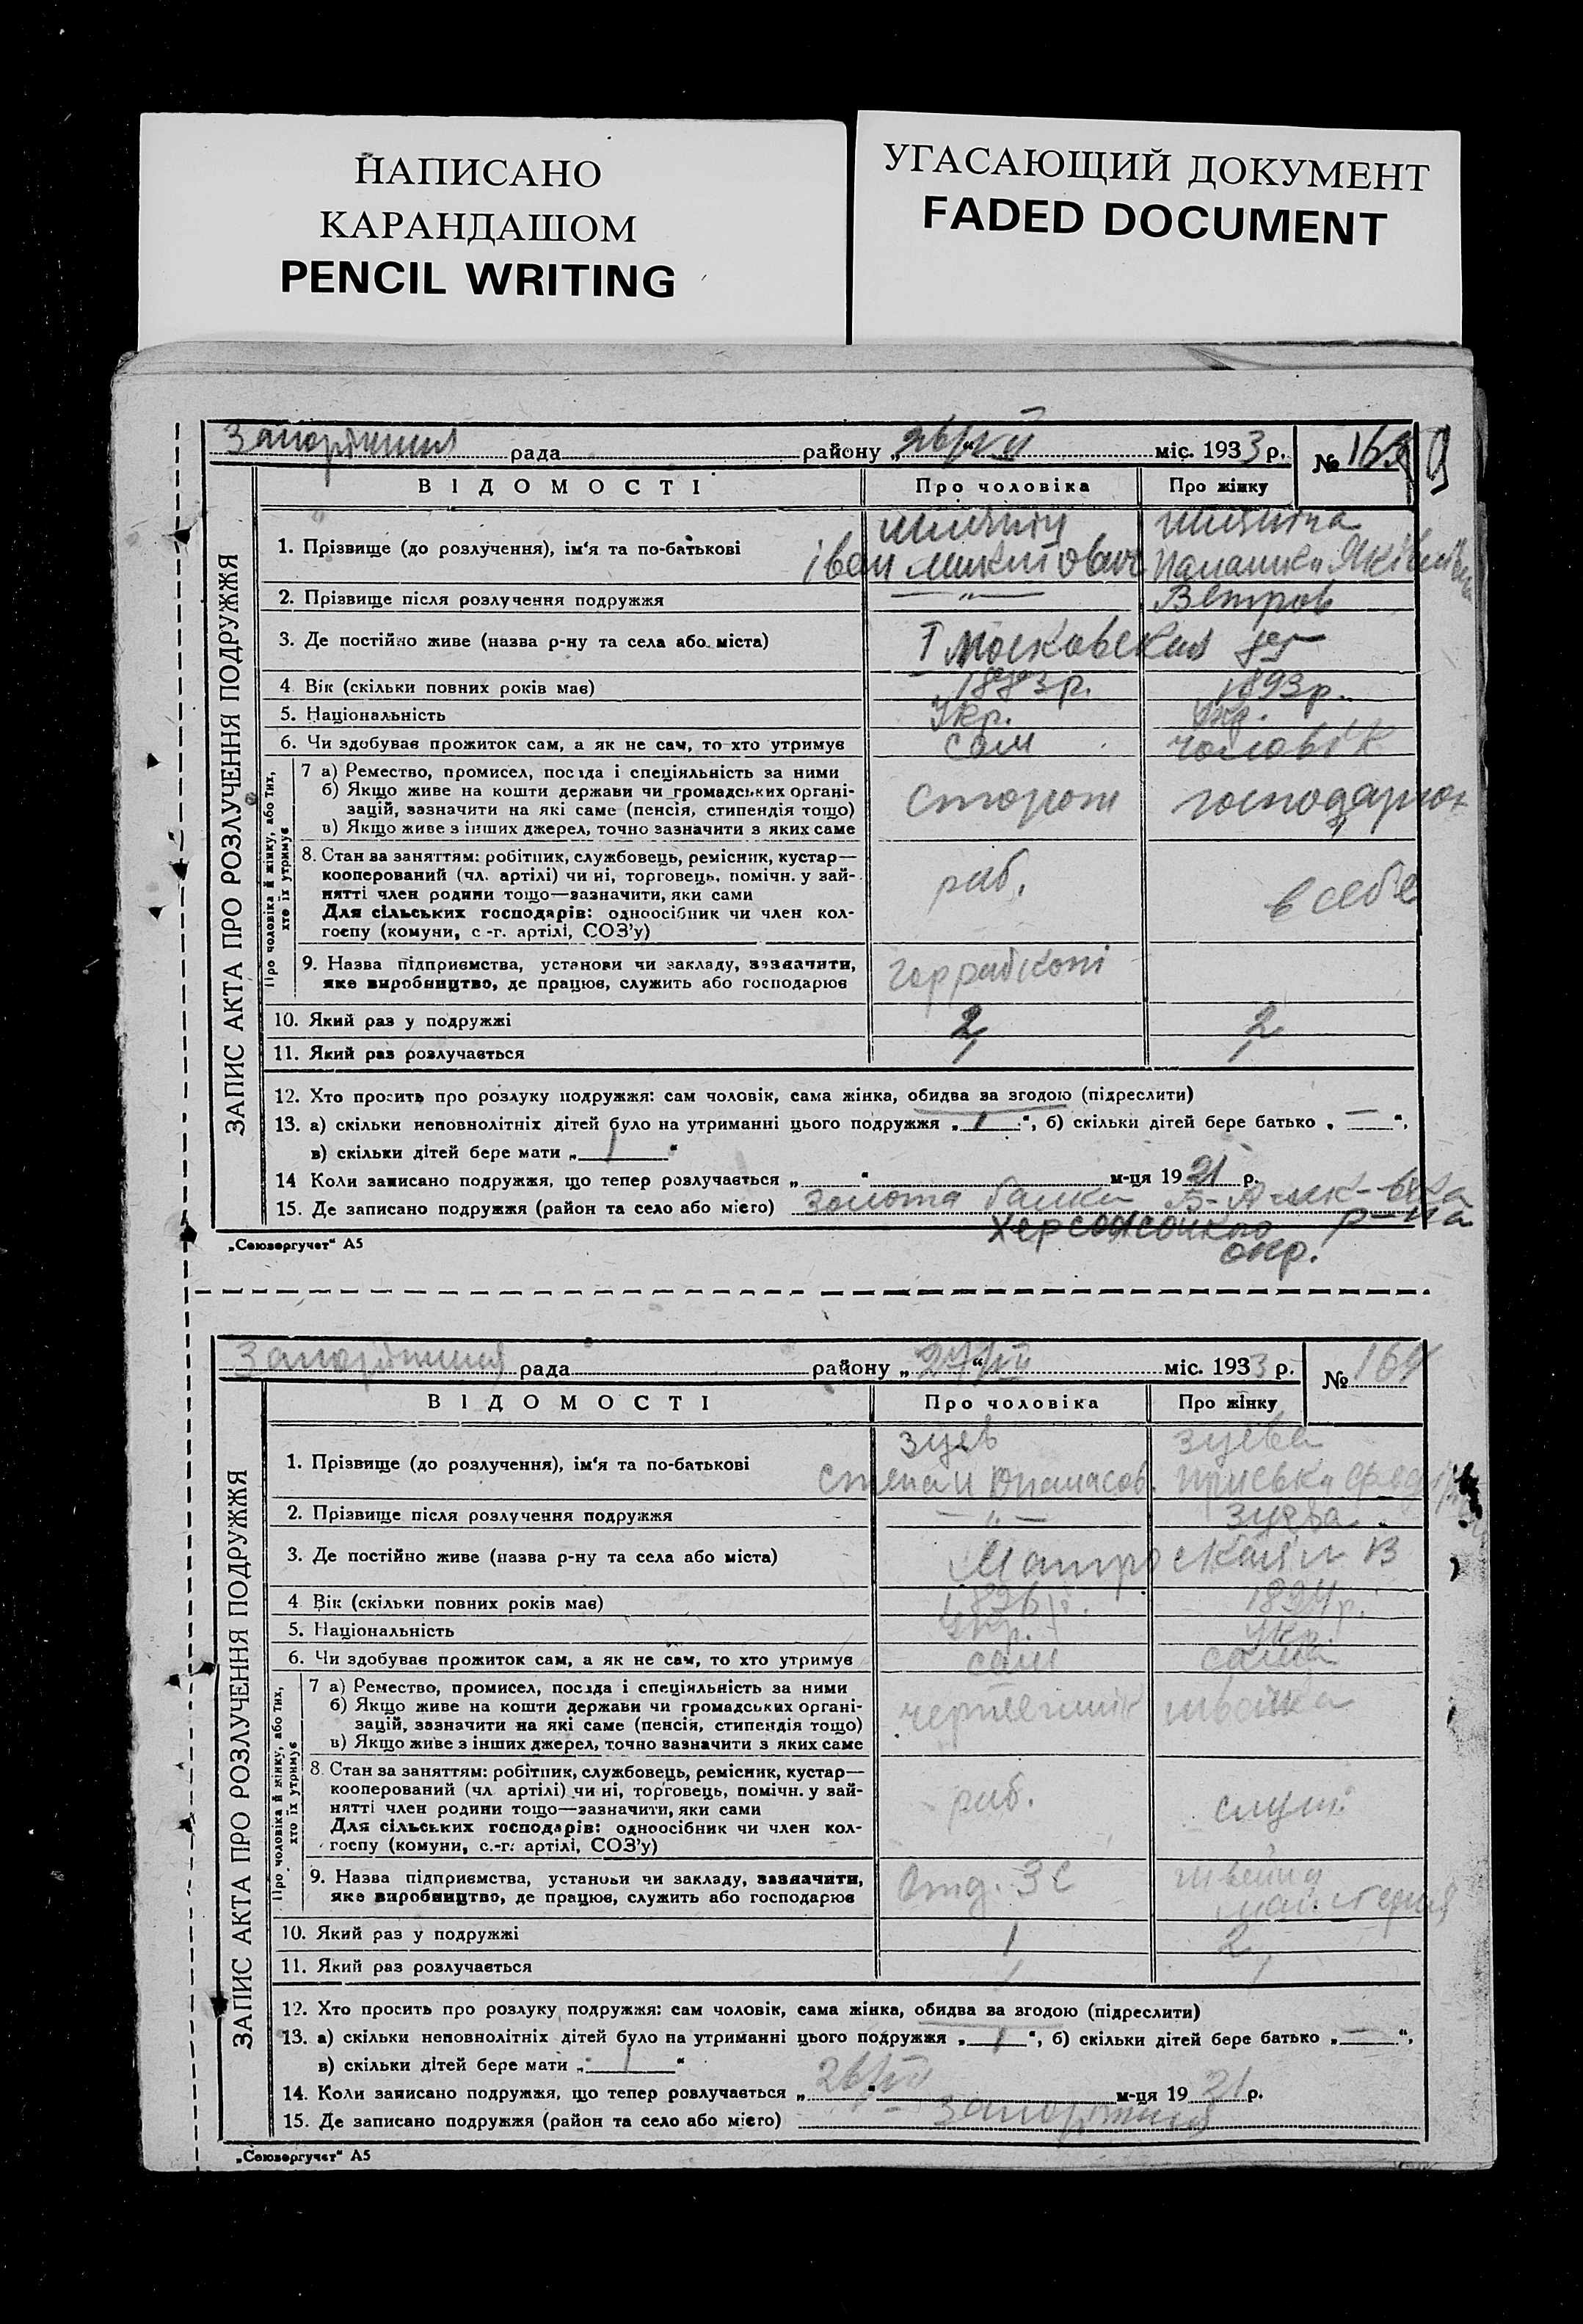 НАПИСАНО
КАРАНДАШОМ
PENCIL WRITING
УГАСАЮЩИЙ ДОКУМЕНТ
FADED DOCUMENT
рада району „26/VII“ міс. 1933 р. №
ЗАПИС АКТА ПРО РОЗЛУЧЕННЯ ПОДРУЖЖЯ
ВІДОМОСТІ Про чоловіка Про жінку
1. Прізвище (до розлучення), ім'я та по-батькові
Іван Микитович
2. Прізвище після розлучення подружжя —„— Ветров
3. Де постійно живе (назва р-ну та села або міста) Московская 85
4. Вік (скільки повних років має) 1883р. 1893р.
5. Національність Укр. Укр.
6. Чи здобував прожиток сам, а як не сам, то хто утримує сам чоловік
Про чоловіка й жінку, або тих, хто їх утримує
7 а) Ремество, промисел, посада і спеціяльність за ними
б) Якщо живе на кошти держави чи громадських органі-
зацій, зазначити на які саме (пенсія, стипендія тощо)
в) Якщо живе з інших джерел, точно зазначити з яких саме
сторож
8. Стан за заняттям: робітник, службовець, ремісник, кустар—
кооперований (чл. артілі) чи ні, торговець, помічн. у зай-
нятті член родини тощо—зазначити, яки сами
Для сільських господарів: одноосібник чи член кол-
госпу (комуни, с.-г. артілі, СОЗ'у)
роб. в себе
9. Назва підприємства, установи чи закладу, зазначити,
яке виробництво, де працює, служить або господарює
10. Який раз у подружжі 2 2
11. Який раз розлучається 1 1
12. Хто просить про розлуку подружжя: сам чоловік, сама жінка, обидва за згодою (підреслити)
13. а) скільки неповнолітніх дітей було на утриманні цього подружжя „ 1 “, б) скільки дітей бере батько „ — “,
в) скільки дітей бере мати „ 1 “
14 Коли записано подружжя, що тепер розлучається „ “ м-ця 1921 р.
15. Де записано подружжя (район та село або місто) Золота балка Б-Алек-вська
р-на
окр.
„Союзоргучет“ А5
рада району „27/VII“ міс. 1933 р. № 164
ЗАПИС АКТА ПРО РОЗЛУЧЕННЯ ПОДРУЖЖЯ
ВІДОМОСТІ Про чоловіка Про жінку
Зуев Зуева
1. Прізвище (до розлучення), ім'я та по-батькові
Степан
2. Прізвище після розлучення подружжя —„— Зуева
3. Де постійно живе (назва р-ну та села або міста)
4 Вік (скільки повних років має) 1896р. 1894р.
5. Національність Укр. Укр.
6. Чи здобував прожиток сам, а як не сам, то хто утримує сам сама
Про чоловіка й жінку, або тих, хто їх утримує
7 а) Ремество, промисел, посада і спеціяльність за ними
б) Якщо живе на кошти держави чи громадських органі-
зацій, зазначити на які саме (пенсія, стипендія тощо)
в) Якщо живе з інших джерел, точно зазначити з яких саме
8. Стан за заняттям: робітник, службовець, ремісник, кустар—
кооперований (чл артілі) чи ні, торговець, помічн. у зай-
нятті член родини тощо—зазначити, яки сами
Для сільських господарів: одноосібник чи член кол-
госпу (комуни, с.-г. артілі, СОЗ'у)
роб. служ.
9. Назва підприємства, установи чи закладу, зазначити,
яке виробництво, де працює, служить або господарює
10. Який раз у подружжі 1 2
11. Який раз розлучається 1 1
12. Хто просить про розлуку подружжя: сам чоловік, сама жінка, обидва за згодою (підреслити)
13. а) скільки неповнолітніх дітей було на утриманні цього подружжя „ 1 “, б) скільки дітей бере батько „ — “,
в) скільки дітей бере мати „ 1 “
14. Коли записано подружжя, що тепер розлучається „26/VII“ м-ця 1921 р.
15. Де записано подружжя (район та село або місто)
„Союзоргучет“ А5